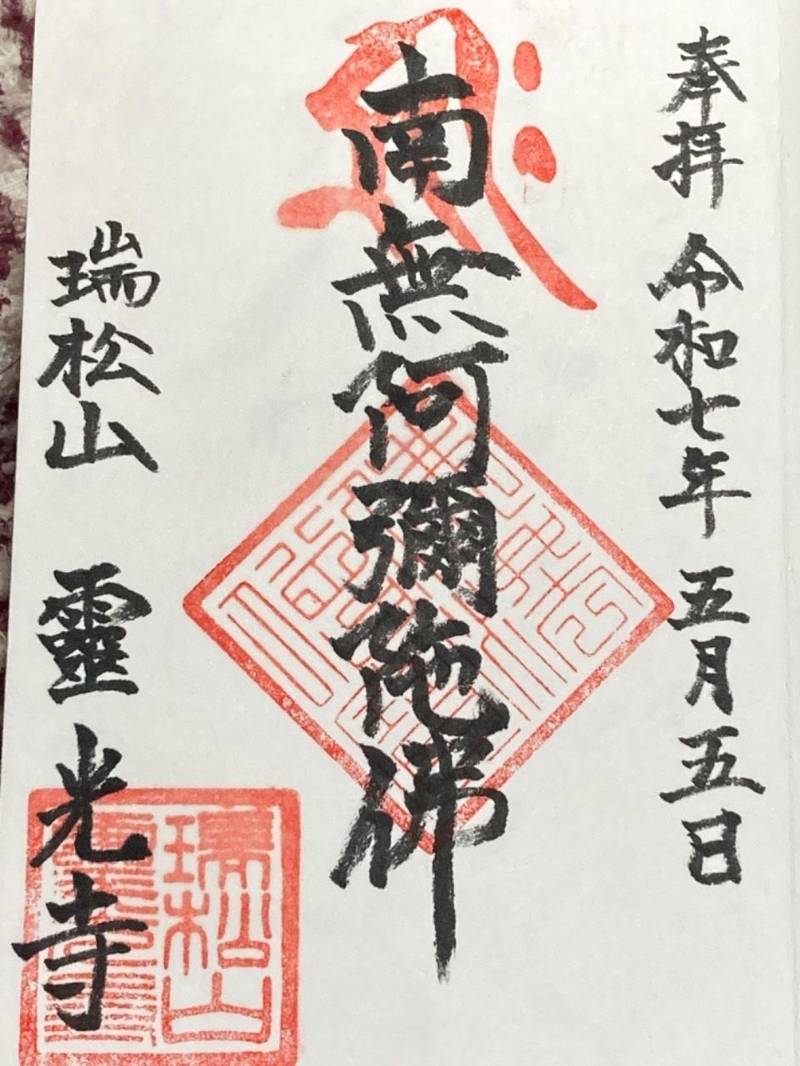 奉拝 令和七年 五月五日
南無阿彌陀佛
瑞松山 靈光寺
瑞松山